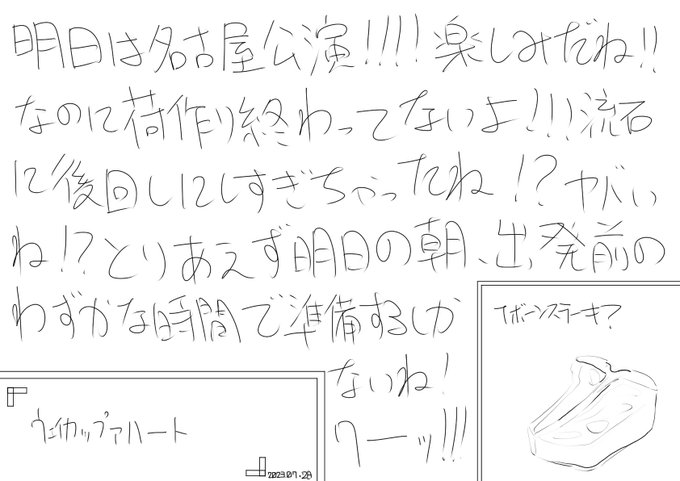 明日は名古屋公演!!!!楽しみだね!!
なのに荷作り終わってないよ!!!流石
に後回しにしすぎちゃったね!?ヤバい
ね!?とりあえず明日の朝、出発前の
わずかな時間で準備するしか
ないね!
ワーッ!!!
Tボーンステーキ?
ウェイカップアハート
2023.07.28